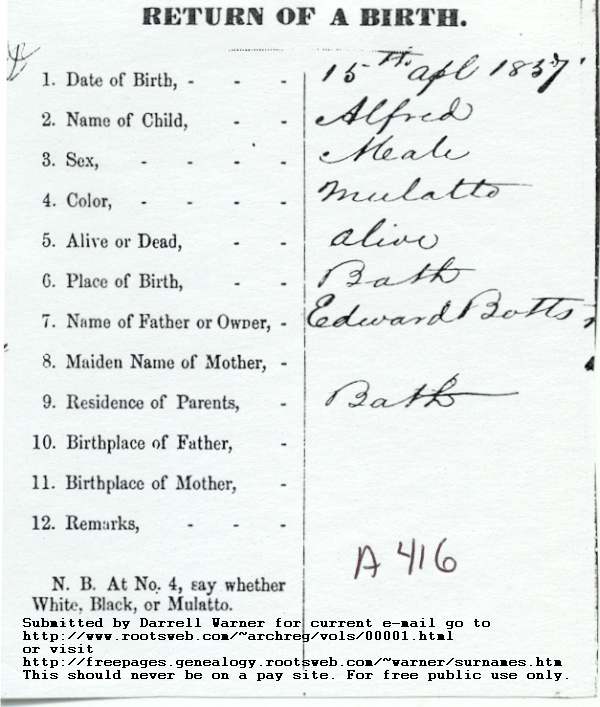 RETURN OF A BIRTH.
1. Date of Birth, - - - 15th apl 1857
2. Name of Child, - - Alfred
3. Sex, - - - - Meale
4. Color, - - - - Mulatto
5. Alive or Dead, - - alive
6. Place of Birth, - - Bath
7. Name of Father or Owner, - Edward Botts
8. Maiden Name of Mother, -
9. Residence of Parents, - Bath
10. Birthplace of Father, -
11. Birthplace of Mother, -
12. Remarks, - - -
A 416
N. B. At No. 4, say whether
White, Black, or Mulatto.
Submitted by Darrell Warner for current e-mail go to
http://www.rootsweb.com/~archreg/vols/00001.html
or visit
http://freepages.genealogy.rootsweb.com/~warner/surnames.htm
This should never be on a pay site. For free public use only.